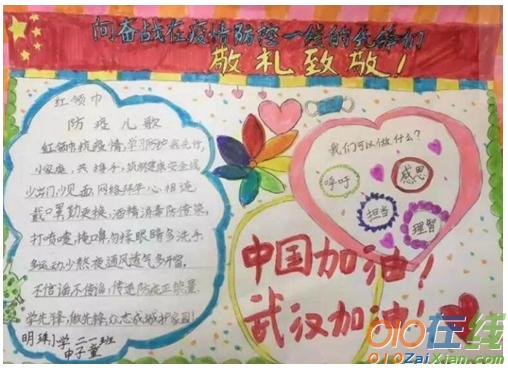 向奋战在疫情防控一线的先锋们
敬礼致敬！
红领巾
防疫儿歌
红领巾抗疫情，学习防护我先行，
小家庭，共携手，筑树健康安全线
少出门少见面，网络拜年心相连
戴口罩勤更换，酒精消毒防传染，
打喷嚏，掩口鼻，勿揉眼睛多洗手，
多运动少熬夜通风透气多开窗，
不信谣不传谣，传递防疫正能量
学先锋，做先锋，众志成城护家园！
明珠小学 二一班
我们可以做什么？
呼吁
感恩
担当
理智
中国加油！
武汉加油！
010在线
010ZaiXian.com